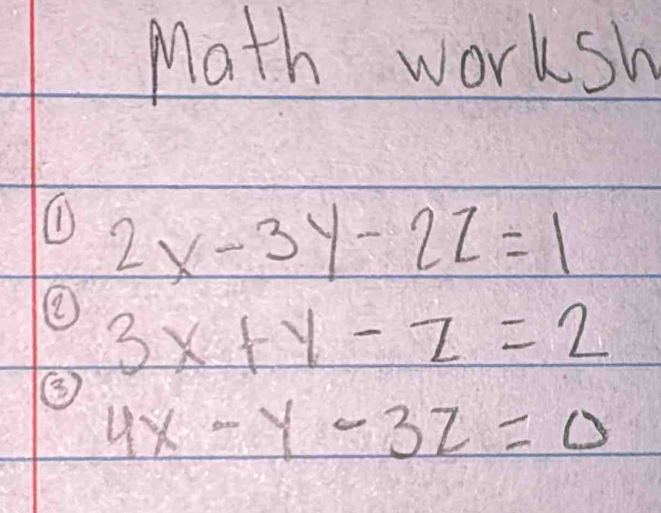 Math worksh
① 2x - 3y - 2z = 1
② 3x + y - z = 2
③ 4x - y - 3z = 0